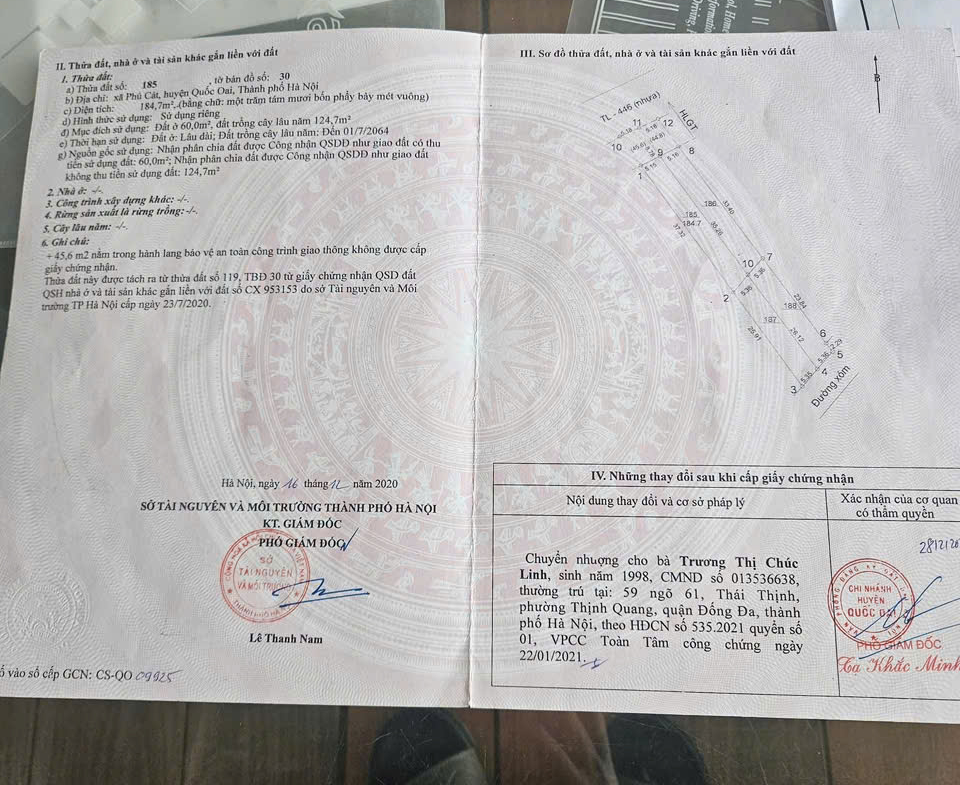 II. Thửa đất, nhà ở và tài sản khác gắn liền với đất
1. Thửa đất:
a) Thửa đất số: 185 , tờ bản đồ số: 30
b) Địa chỉ: xã Phú Cát, huyện Quốc Oai, Thành phố Hà Nội
c) Diện tích: 184,7m², (bằng chữ: một trăm tám mươi bốn phẩy bảy mét vuông)
d) Hình thức sử dụng: Sử dụng riêng
đ) Mục đích sử dụng: Đất ở 60,0m², đất trồng cây lâu năm 124,7m²
e) Thời hạn sử dụng: Đất ở: Lâu dài; Đất trồng cây lâu năm: Đến 01/7/2064
g) Nguồn gốc sử dụng: Nhận phân chia đất được Công nhận QSDĐ như giao đất có thu
tiền sử dụng đất: 60,0m²; Nhận phân chia đất được Công nhận QSDĐ như giao đất
không thu tiền sử dụng đất: 124,7m²
2. Nhà ở: -/-.
3. Công trình xây dựng khác: -/-.
4. Rừng sản xuất là rừng trồng:-/-.
5. Cây lâu năm: -/-.
6. Ghi chú:
+ 45,6 m2 nằm trong hành lang bảo vệ an toàn công trình giao thông không được cấp
giấy chứng nhận.
Thửa đất này được tách ra từ thửa đất số 119, TBĐ 30 từ giấy chứng nhận QSD đất
QSH nhà ở và tài sản khác gắn liền với đất số CX 953153 do sở Tài nguyên và Môi
trường TP Hà Nội cấp ngày 23/7/2020.
Hà Nội, ngày 16 tháng 12 năm 2020
SỞ TÀI NGUYÊN VÀ MÔI TRƯỜNG THÀNH PHỐ HÀ NỘI
KT. GIÁM ĐỐC
PHÓ GIÁM ĐỐC
SỞ
TÀI NGUYÊN
VÀ MÔI TRƯỜNG
Lê Thanh Nam
số vào sổ cấp GCN: CS-QO 09925
III. Sơ đồ thửa đất, nhà ở và tài sản khác gắn liền với đất
B
TL - 446 (nhựa)
HLGT
11
12
5.18
5.18
10
(45.6)
(44.8)
9
8
1
5.15
5.16
186
33.40
185
184.7
37.32
35.28
10
7
5.36
5.36
2
188
23.84
187
26.12
25.91
6
2.29
5
5.36
4
5.35
3
Đường xóm
IV. Những thay đổi sau khi cấp giấy chứng nhận
Nội dung thay đổi và cơ sở pháp lý
Xác nhận của cơ quan
có thẩm quyền
Chuyển nhượng cho bà Trương Thị Chúc
Linh, sinh năm 1998, CMND số 013536638,
thường trú tại: 59 ngõ 61, Thái Thịnh,
phường Thịnh Quang, quận Đống Đa, thành
phố Hà Nội, theo HĐCN số 535.2021 quyển số
01, VPCC Toàn Tâm công chứng ngày
22/01/2021.
CHI NHÁNH
HUYỆN
QUỐC OAI
PHÓ GIÁM ĐỐC
Tạ Khắc Minh